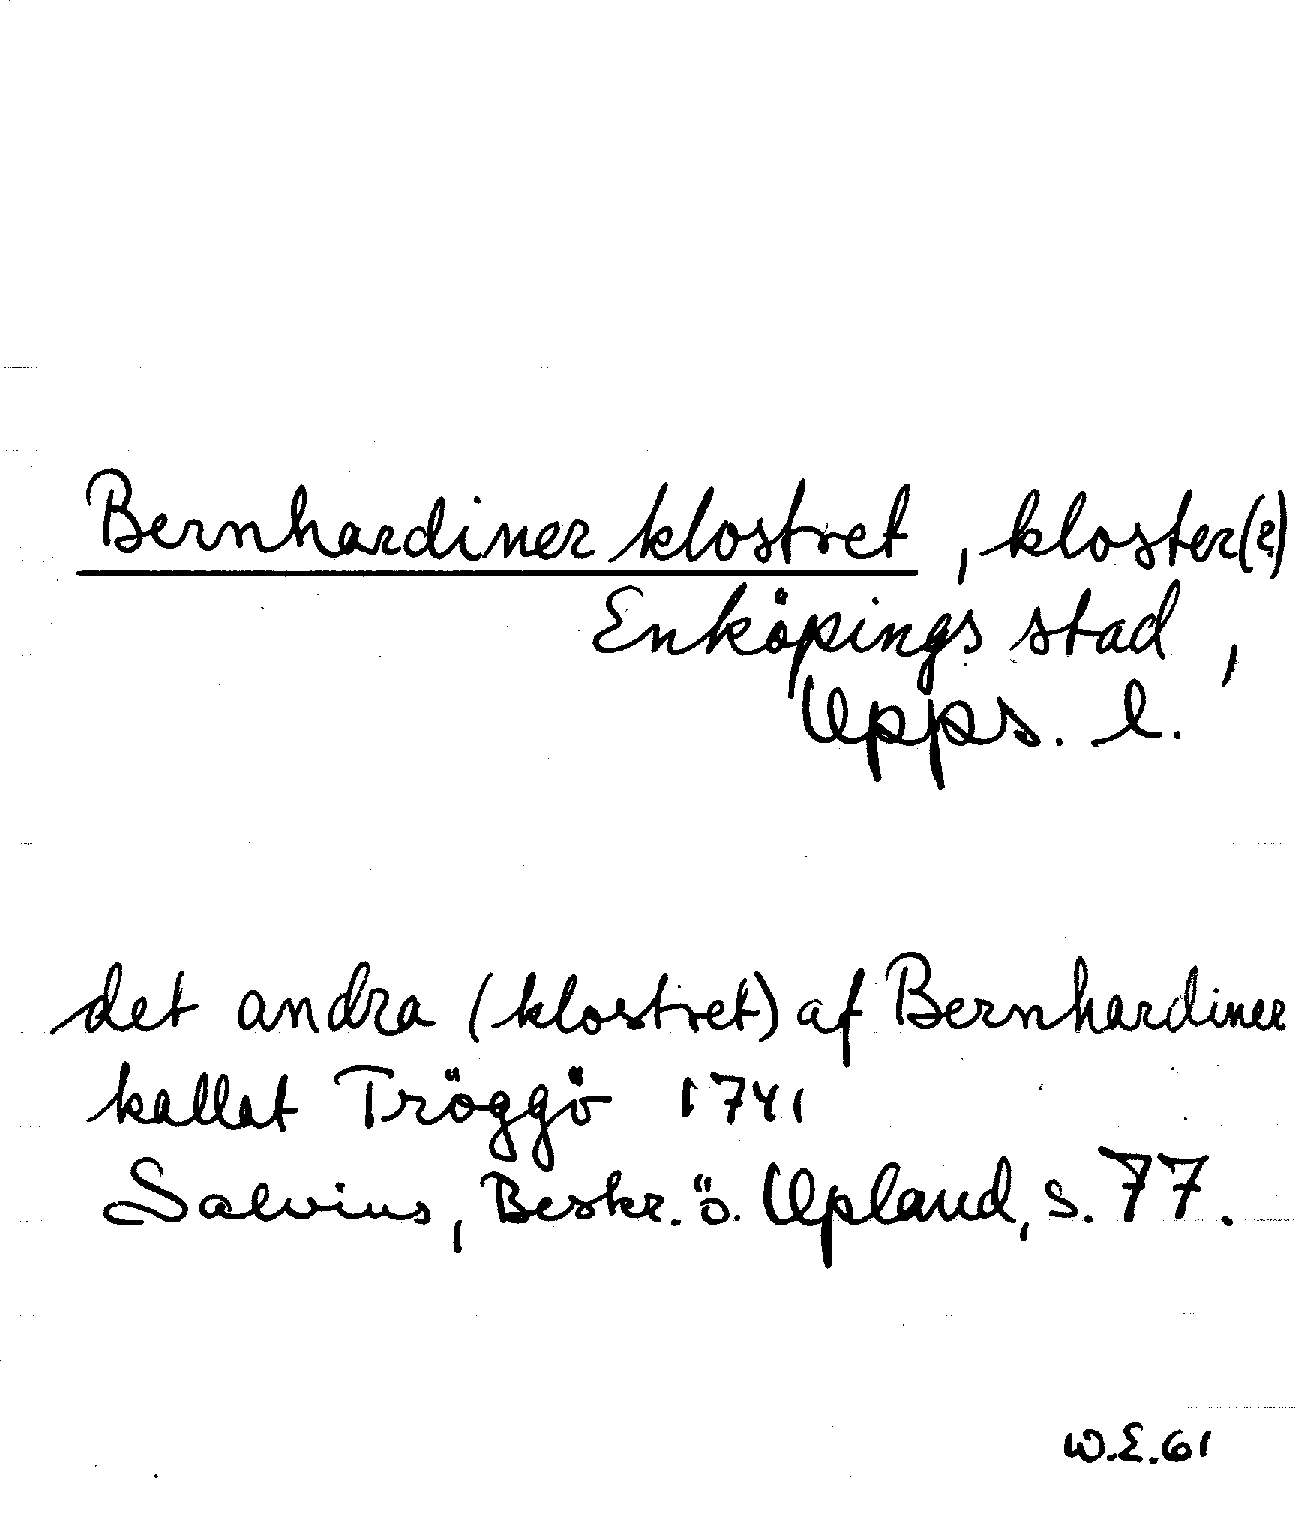 Bernhardiner klostret, kloster(?)
Enköpings stad,
Upps. l.
det andra (klostret) af Bernhardiner
kallat Tröggö 1741
Salvius, Beskr. ö. Upland, s. 77.
W.E.61